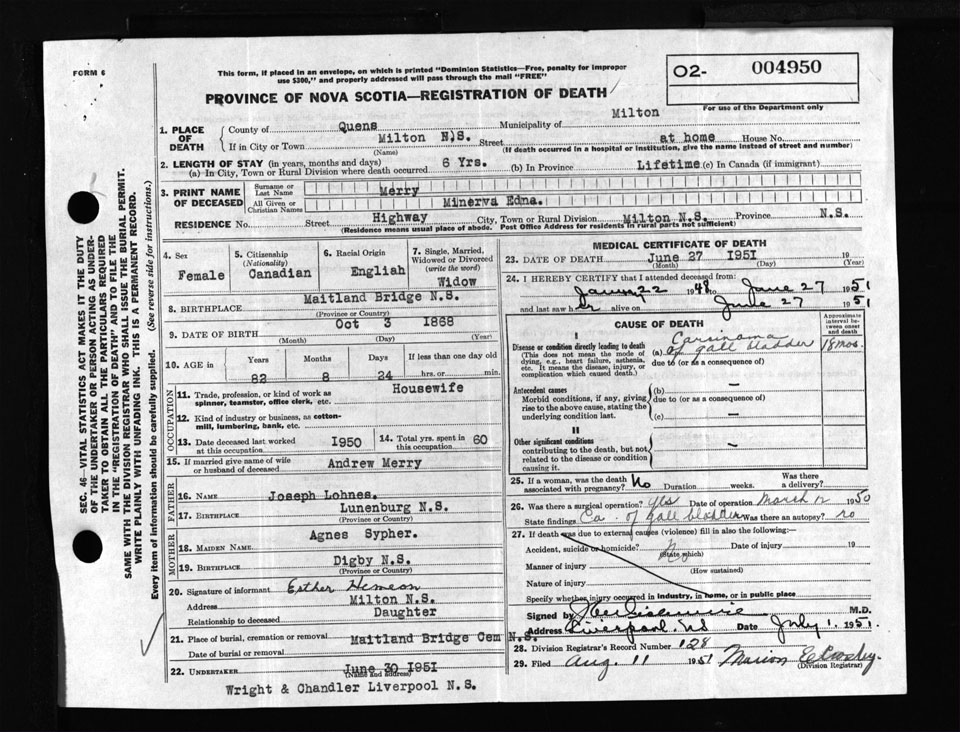 FORM 6
This form, if placed in an envelope, on which is printed "Dominion Statistics—Free, penalty for improper
use $300," and properly addressed will pass through the mail "FREE"
O2- 004950
For use of the Department only
PROVINCE OF NOVA SCOTIA—REGISTRATION OF DEATH
1. PLACE OF DEATH
County of Quens Municipality of Milton
If in City or Town Milton N.S. Street at home House No.
(Name) (If death occurred in a hospital or institution, give the name instead of street and number)
2. LENGTH OF STAY (in years, months and days)
(a) In City, Town or Rural Division where death occurred 6 Yrs. (b) In Province Lifetime (c) In Canada (if immigrant)
3. PRINT NAME OF DECEASED
Surname or Last Name Merry
All Given or Christian Names Minerva Edna.
RESIDENCE No. Street Highway City, Town or Rural Division Milton N.S. Province N.S.
(Residence means usual place of abode. Post Office Address for residents in rural parts not sufficient)
4. Sex Female
5. Citizenship (Nationality) Canadian
6. Racial Origin English
7. Single, Married, Widowed or Divorced (write the word) Widow
8. BIRTHPLACE Maitland Bridge N.S.
(Province or Country)
9. DATE OF BIRTH Oct 3 1868
(Month) (Day) (Year)
10. AGE in Years Months Days If less than one day old
82 8 24 hrs. or min.
OCCUPATION
11. Trade, profession, or kind of work as spinner, teamster, office clerk, etc. Housewife
12. Kind of industry or business, as cotton-mill, lumbering, bank, etc.
13. Date deceased last worked at this occupation 1950
14. Total yrs. spent in this occupation 60
15. If married give name of wife or husband of deceased Andrew Merry
FATHER
16. NAME Joseph Lohnes.
17. BIRTHPLACE Lunenburg N.S.
(Province or Country)
MOTHER
18. MAIDEN NAME Agnes Sypher.
19. BIRTHPLACE Digby N.S.
(Province or Country)
20. Signature of informant Esther Hemeon
Address Milton N.S.
Relationship to deceased Daughter
21. Place of burial, cremation or removal Maitland Bridge Cem N.S.
Date of burial or removal
22. UNDERTAKER June 30 1951
(Name and address)
Wright & Chandler Liverpool N.S.
MEDICAL CERTIFICATE OF DEATH
23. DATE OF DEATH June 27 1951
(Month) (Day) (Year)
24. I HEREBY CERTIFY that I attended deceased from:
22 1948 to June 27 1951
and last saw her alive on June 27 1951
CAUSE OF DEATH
Approximate interval between onset and death
I
Disease or condition directly leading to death
(This does not mean the mode of dying, e.g., heart failure, asthenia, etc. It means the disease, injury, or complication which caused death.)
(a) Carsinama of gall bladder 18 mos.
due to (or as a consequence of)
Antecedent causes
Morbid conditions, if any, giving rise to the above cause, stating the underlying condition last.
(b) —
due to (or as a consequence of)
(c) —
II
Other significant conditions
contributing to the death, but not related to the disease or condition causing it.
—
25. If a woman, was the death associated with pregnancy? No Duration weeks. Was there a delivery?
26. Was there a surgical operation? Yes Date of operation March 12 1950
State findings Ca. of gall bladder Was there an autopsy? no
27. If death was due to external causes (violence) fill in also the following:
Accident, suicide or homicide? No Date of injury 19
(State which)
Manner of injury
(How sustained)
Nature of injury
Specify whether injury occurred in industry, in home, or in public place
Signed by M.D.
Address Liverpool, NS Date July 1, 1951.
28. Division Registrar's Record Number 128
29. Filed Aug. 11 1951 Marion
(Division Registrar)
SEC. 46—VITAL STATISTICS ACT MAKES IT THE DUTY
OF THE UNDERTAKER OR PERSON ACTING AS UNDER-
TAKER TO OBTAIN ALL THE PARTICULARS REQUIRED
IN THE "REGISTRATION OF DEATH" AND TO FILE THE
SAME WITH THE DIVISION REGISTRAR WHO SHALL ISSUE THE BURIAL PERMIT.
WRITE PLAINLY WITH UNFADING INK. THIS IS A PERMANENT RECORD.
Every item of information should be carefully supplied. (See reverse side for instructions.)